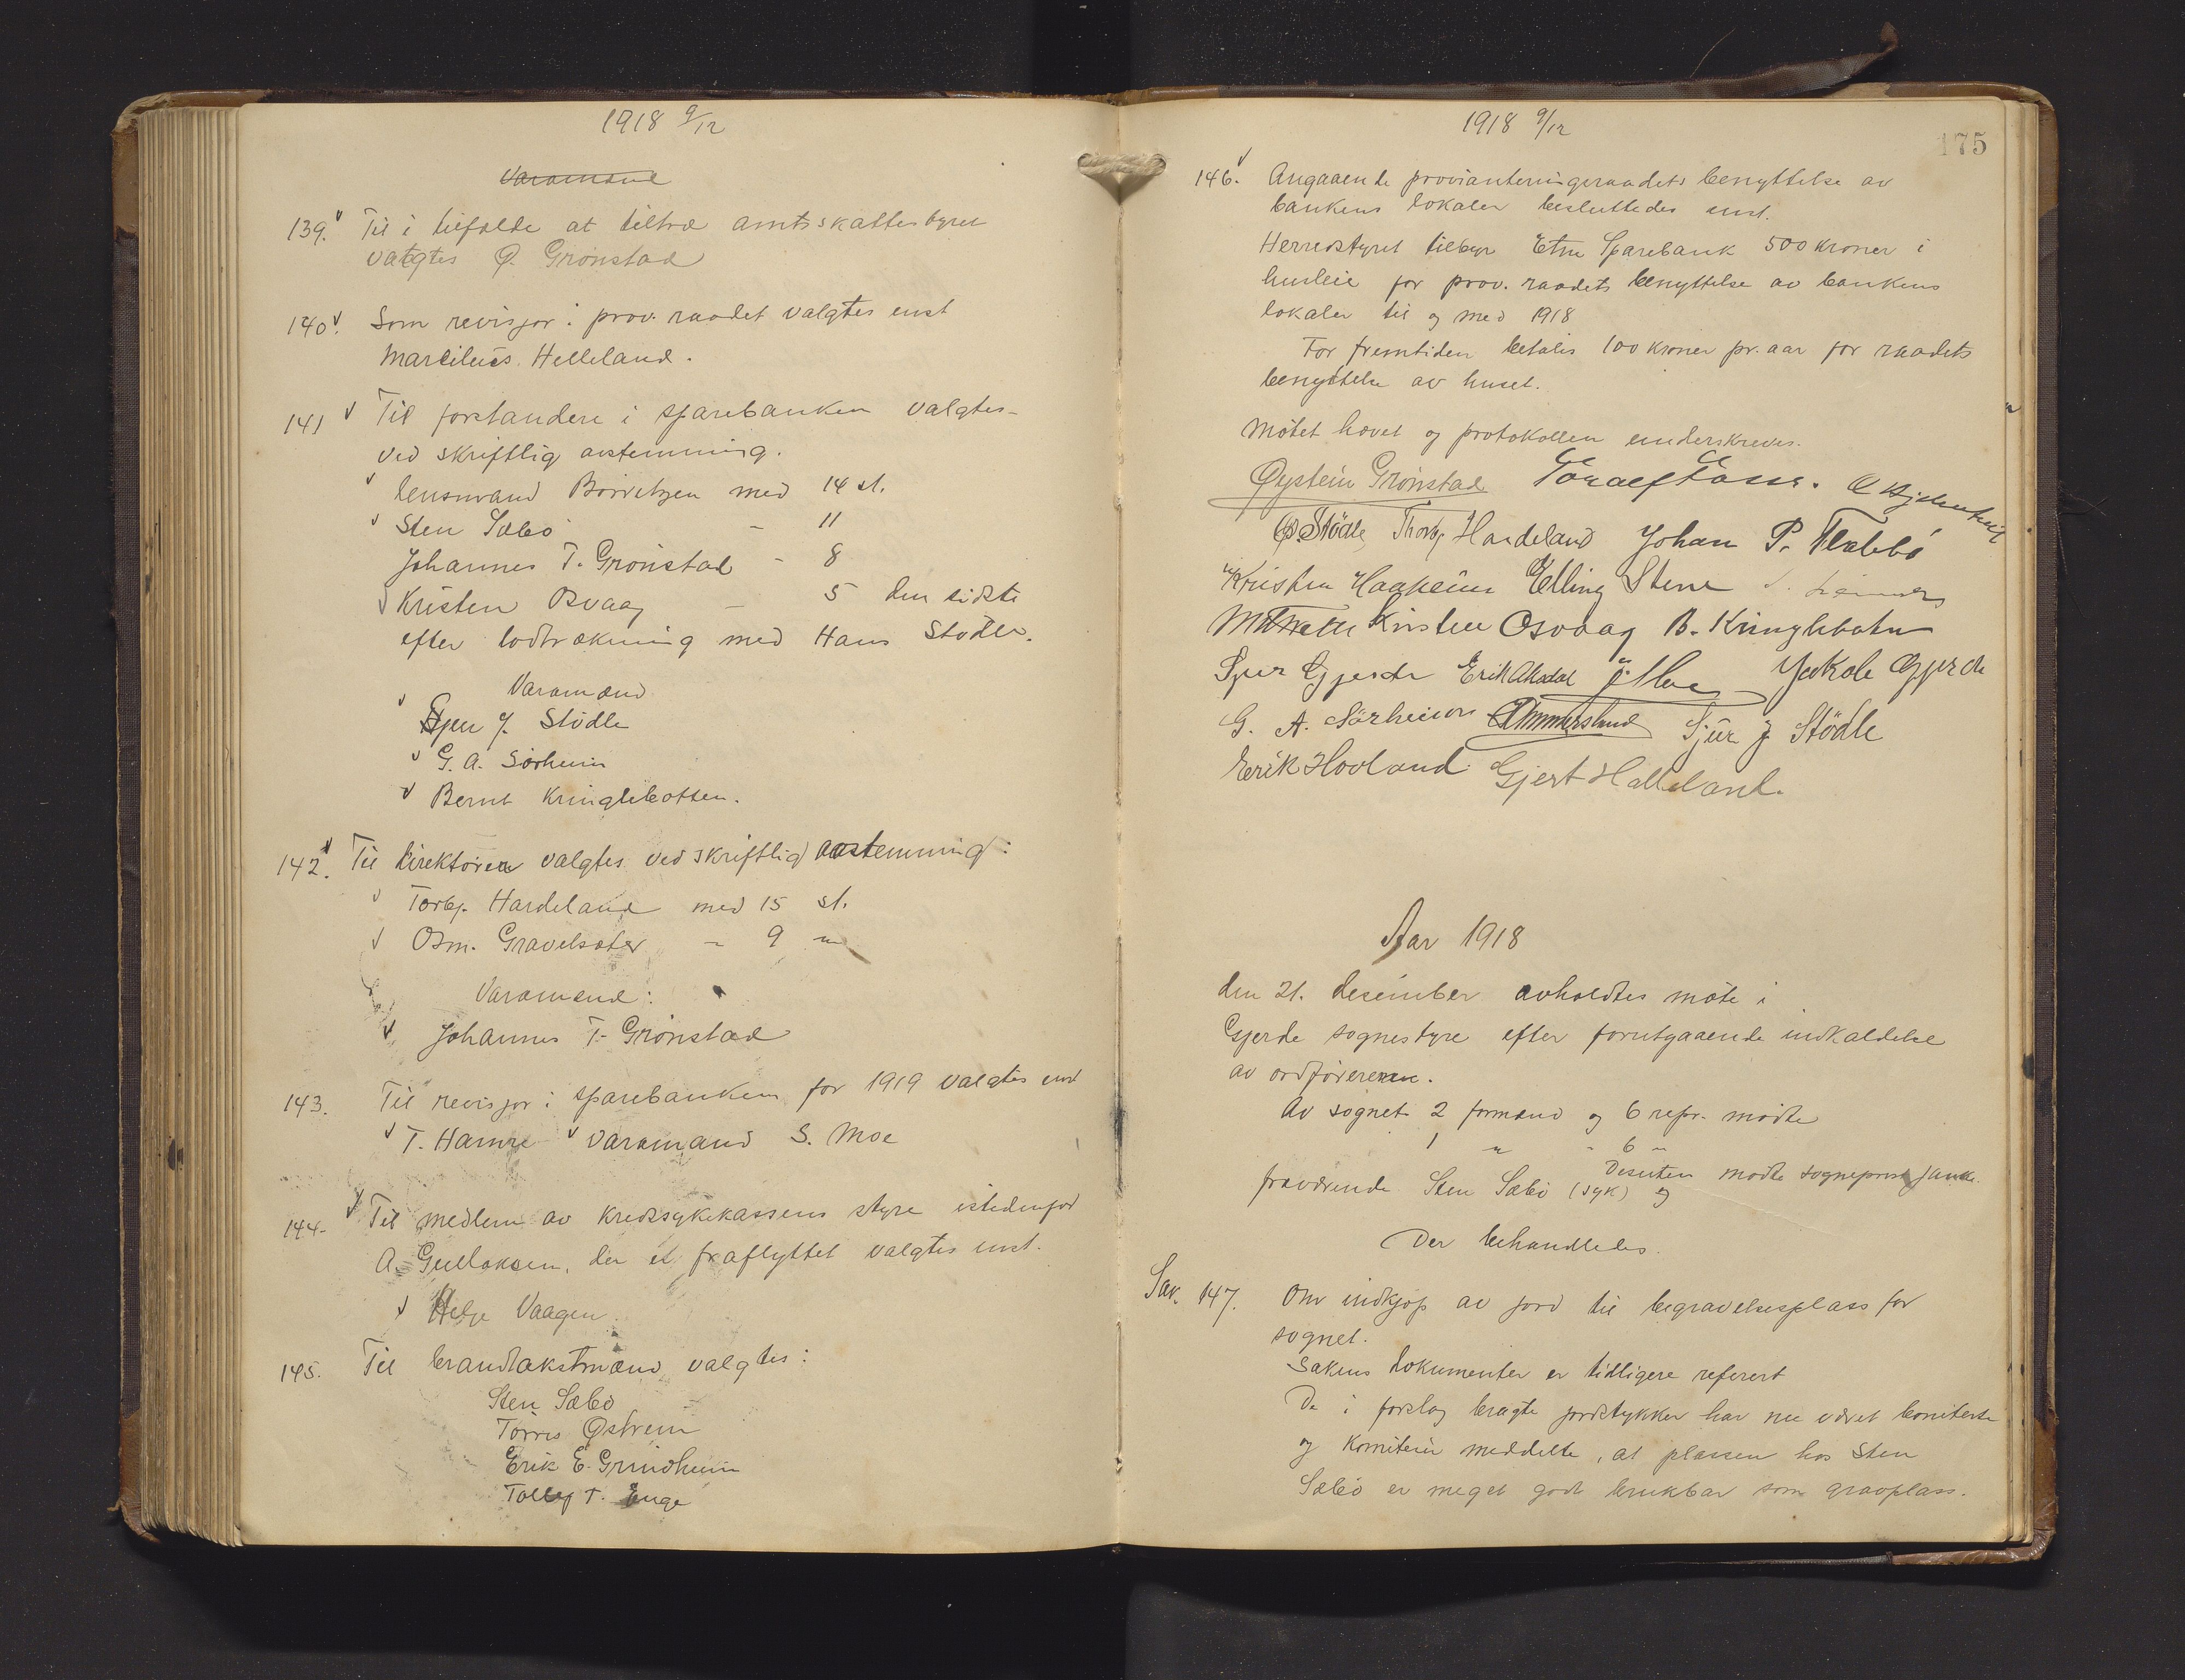 1918 9/12
Varamænd
139. Til i tilfælde at tiltræ amtsskattestyret
valgtes Ø. Grönstad
140. Som revisjor i prov. raadet valgtes enst
Marcilius Helleland.
141 Til forstandere i sparebanken valgtes
ved skriftlig avstemming.
lensmand Börretzen med 14 st.
Sten Sæbö - 11
Johannes T. Grönstad - 8
Kristen Osvaag - 5 den sidste
efter lodtrækning med Hans Stödle.
Varamænd
Sjur J. Stödle
G. A. Sörheim
Bernt Kringlebotten.
142. Til direktörer valgtes ved skriftlig avstemming:
Torbj. Hardeland med 15 st.
Osm. Gravelsæter - 9 "
Varamænd:
Johannes T. Grönstad
143. Til revisjor i sparebanken for 1919 valgtes enst
T. Hamre varamand S. Moe
144. Til medlem av kredssykekassens styre istedenfor
A. Gullaksen, der er fraflyttet valgtes enst.
Helje Vaagen
145. Til brandtakstmænd valgtes:
Sten Sæbö
Törres Østrem
Erik E. Grindheim
Tollef T. Enge
1918 9/12
175
146. Angaaende provianteringsraadets benyttelse av
bankens lokaler besluttedes enst.
Herredstyret tilbyr Etne Sparebank 500 kroner i
husleie for prov. raadets benyttelse av bankens
lokaler til og med 1918
For fremtiden betales 100 kroner pr. aar for raadets
benyttelse av huset.
Mötet hævet og protokollen underskreves.
Øystein Grönstad
Ø. Stödle Thorbj Hardeland Johan P. Flatebö
Kristen Haaheim Elling Stene
Kristen Osvaag B. Kringlebotn
Sjur Gjerde Erik Akadal Moe Gjerde
G. A. Sörheim Sjur J Stödle
Erik Hovland Gjert Halleland.
Aar 1918
den 21. desember avholdtes möte i
Gjerde sognestyre efter forutgaaende indkaldelse
av ordföreren.
Av sognets 2 formænd og 6 repr. mödte
1 " - 6 "
Desuten mödte sogneprest Janke.
fraværende Sten Sæbö (syk) og
Der behandledes.
Sak. 147. Om indkjöp av jord til begravelsesplass for
sognet.
Sakens dokumenter er tidligere referert
De i forslag bragte jordstykker har nu været boniterte
og komiteen meddelte, at plassen hos Sten
Sæbö er meget godt brukbar som gravplass.